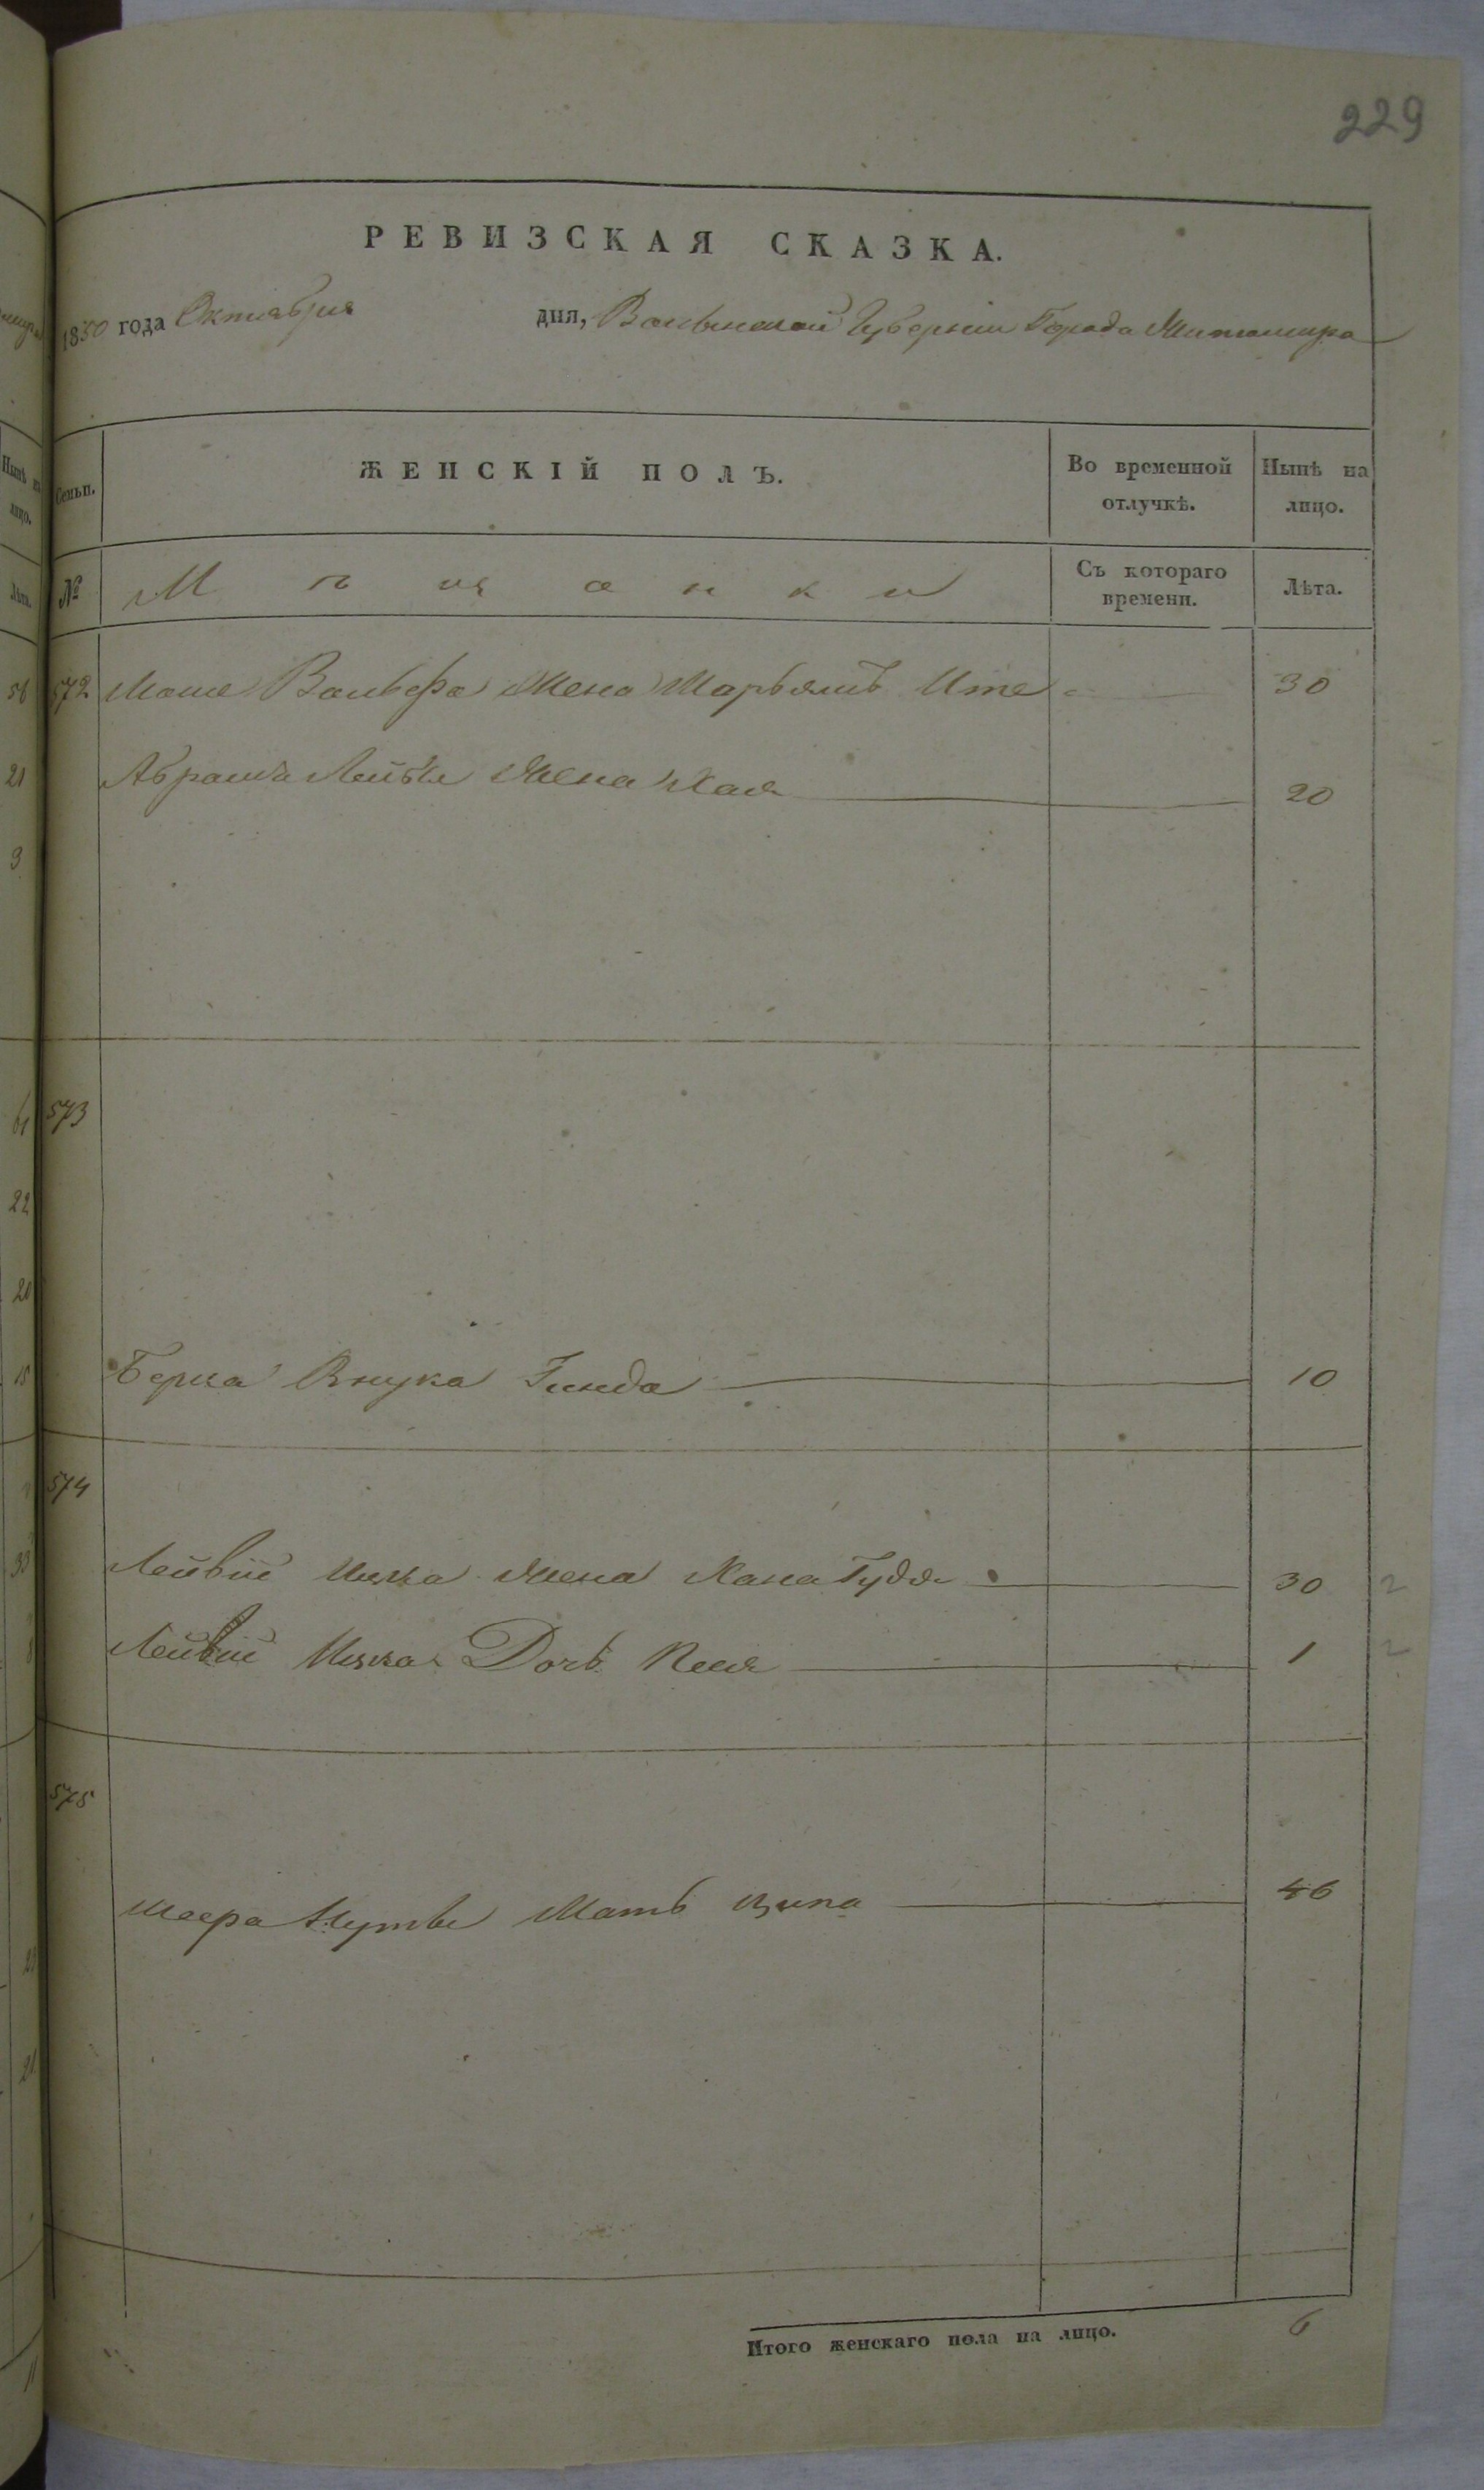 229
РЕВИЗСКАЯ СКАЗКА.
1850 года Октября дня, Волынской Губернии Города Житомира
Семьи. ЖЕНСКІЙ ПОЛЪ. Во временной отлучкѣ. Нынѣ на лицо.
№ Мѣщанки Съ котораго времени. Лѣта.
572 Мошe Вольфа Жена Марьямъ Ите 30
Абрама Лейбы Жена Хая 20
573
Берка Внука Гинда 10
574
Лейвіи Ицка Жена Хана Гудя 30 2
Лейвіи Ицка Дочь Песя 1 2
575
Меера Мать Ципа 46
Итого женскаго пола на лицо. 6